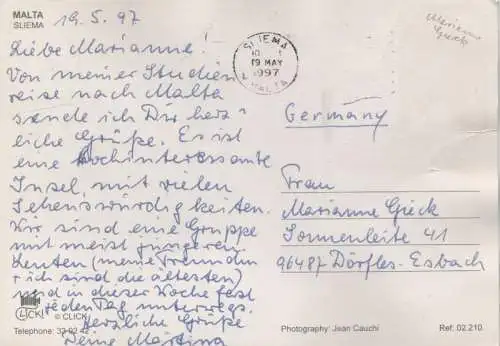 MALTA
SLIEMA
19.5.97
Liebe Marianne!
Von meiner Studien
reise nach Malta
sende ich Dir herz-
liche Grüße. Es ist
eine hochinteressante
Insel, mit vielen
Sehenswürdigkeiten.
Wir sind eine Gruppe
mit meist jüngeren
Leuten (meine Freundin
+ ich sind die ältesten)
und in dieser Woche fast
jeden Tag unterwegs.
Herzliche Grüße
Deine Martina
© CLICK
Telephone: 32 02 42
SLIEMA
19 MAY
1997
MALTA
Marianne
Gieck
Germany
Frau
Marianne Gieck
Sonnenleite 41
96487 Dörfles-Esbach
Photography: Jean Cauchi
Ref: 02.210.